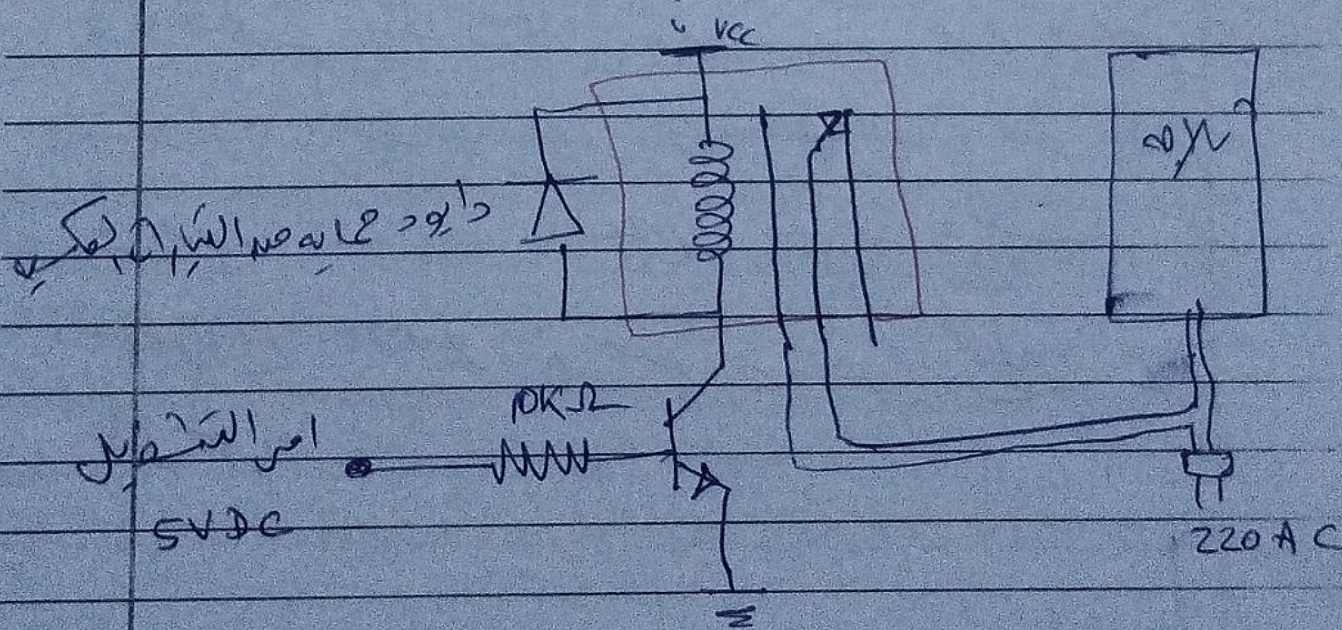 VCC
دايود حماية من التيار العكسي
10KΩ
امر التشغيل
5VDC
220 AC